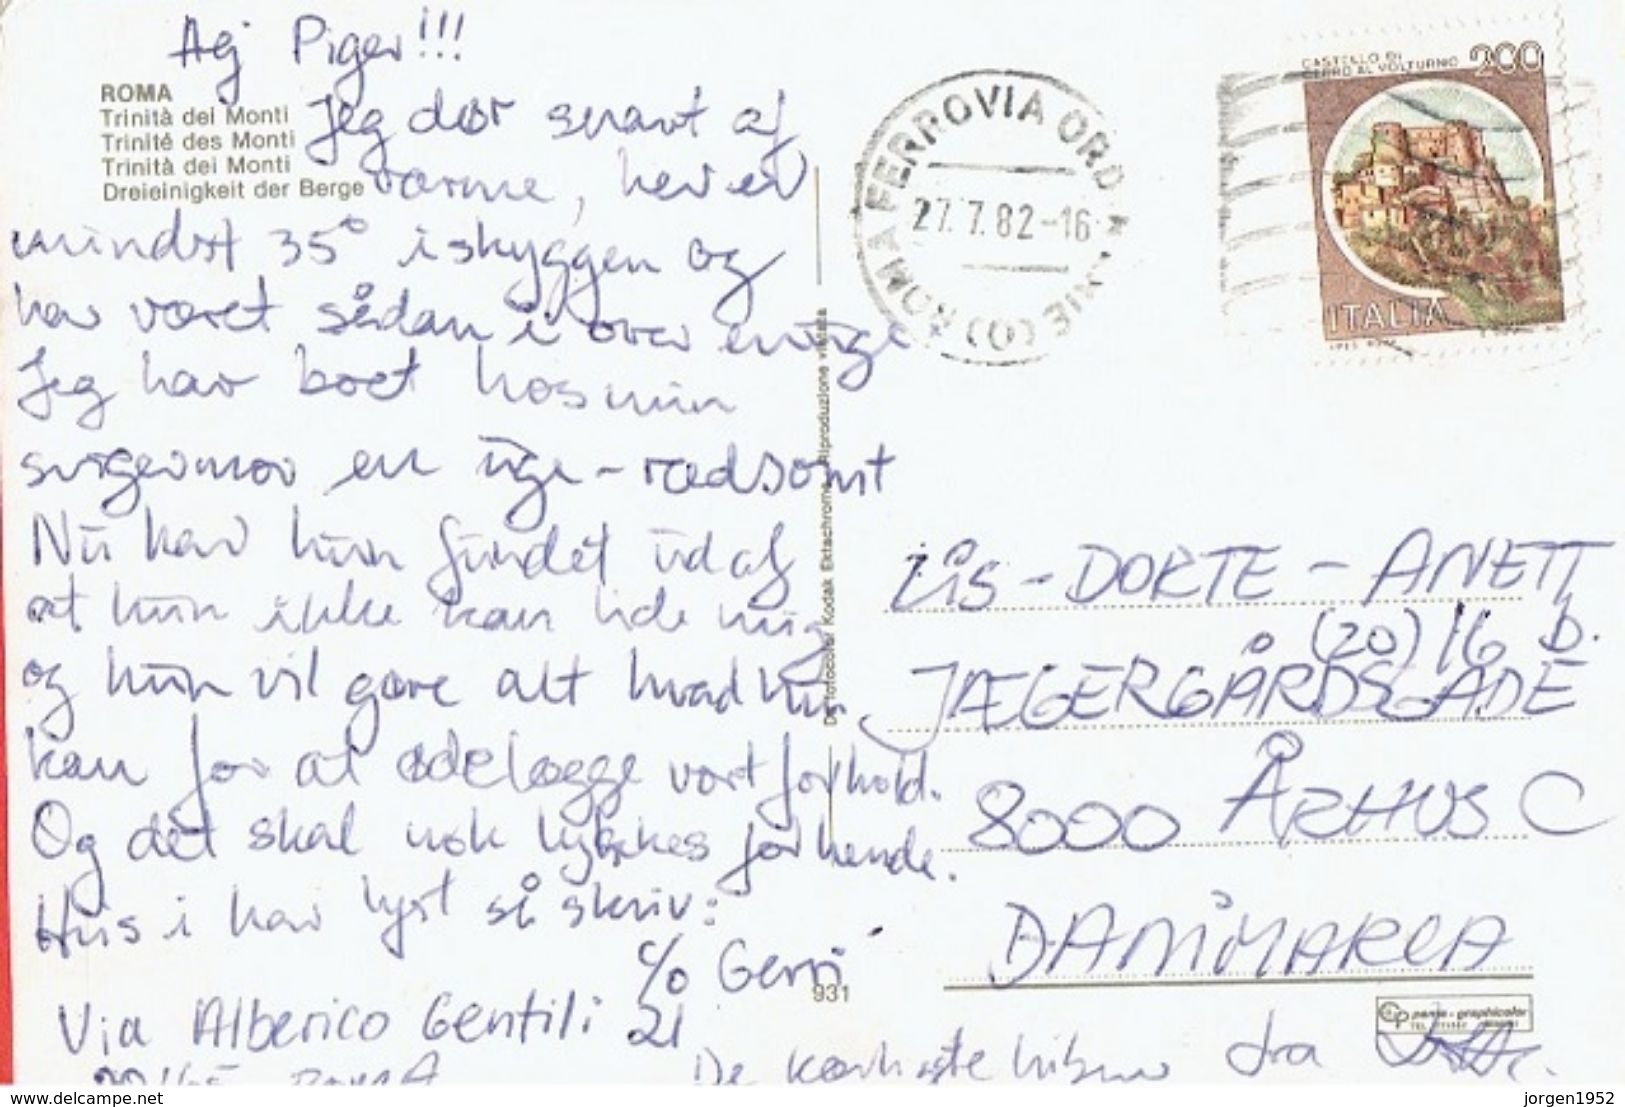 Hej Piger!!!
ROMA
Trinità dei Monti
Trinité des Monti
Trinità dei Monti
Dreieinigkeit der Berge
Jeg dør snart af
varme, her er
mindst 35° i skyggen og
har været sådan i over en uge
Jeg har boet hos min
svigermor en uge - rædsomt
Nu har hun fundet ud af
at hun ikke kan lide mig
og hun vil gøre alt hvad hun
kan for at ødelægge vort forhold.
Og det skal nok lykkes for hende.
Hvis i har lyst så skriv:
c/o Gerri
Via Alberico Gentili 21
ROMA
De kærligste hilsner fra
931
CASTELLO DI
CERRO AL VOLTURNO 200
ITALIA
ROMA FERROVIA ORD
27.7.82-16
LIS - DORTE - ANETT
(20) 16 D.
JÆGERGÅRDSGADE
8000 ÅRHUS C
DANIMARCA
delcampe.net
jorgen1952